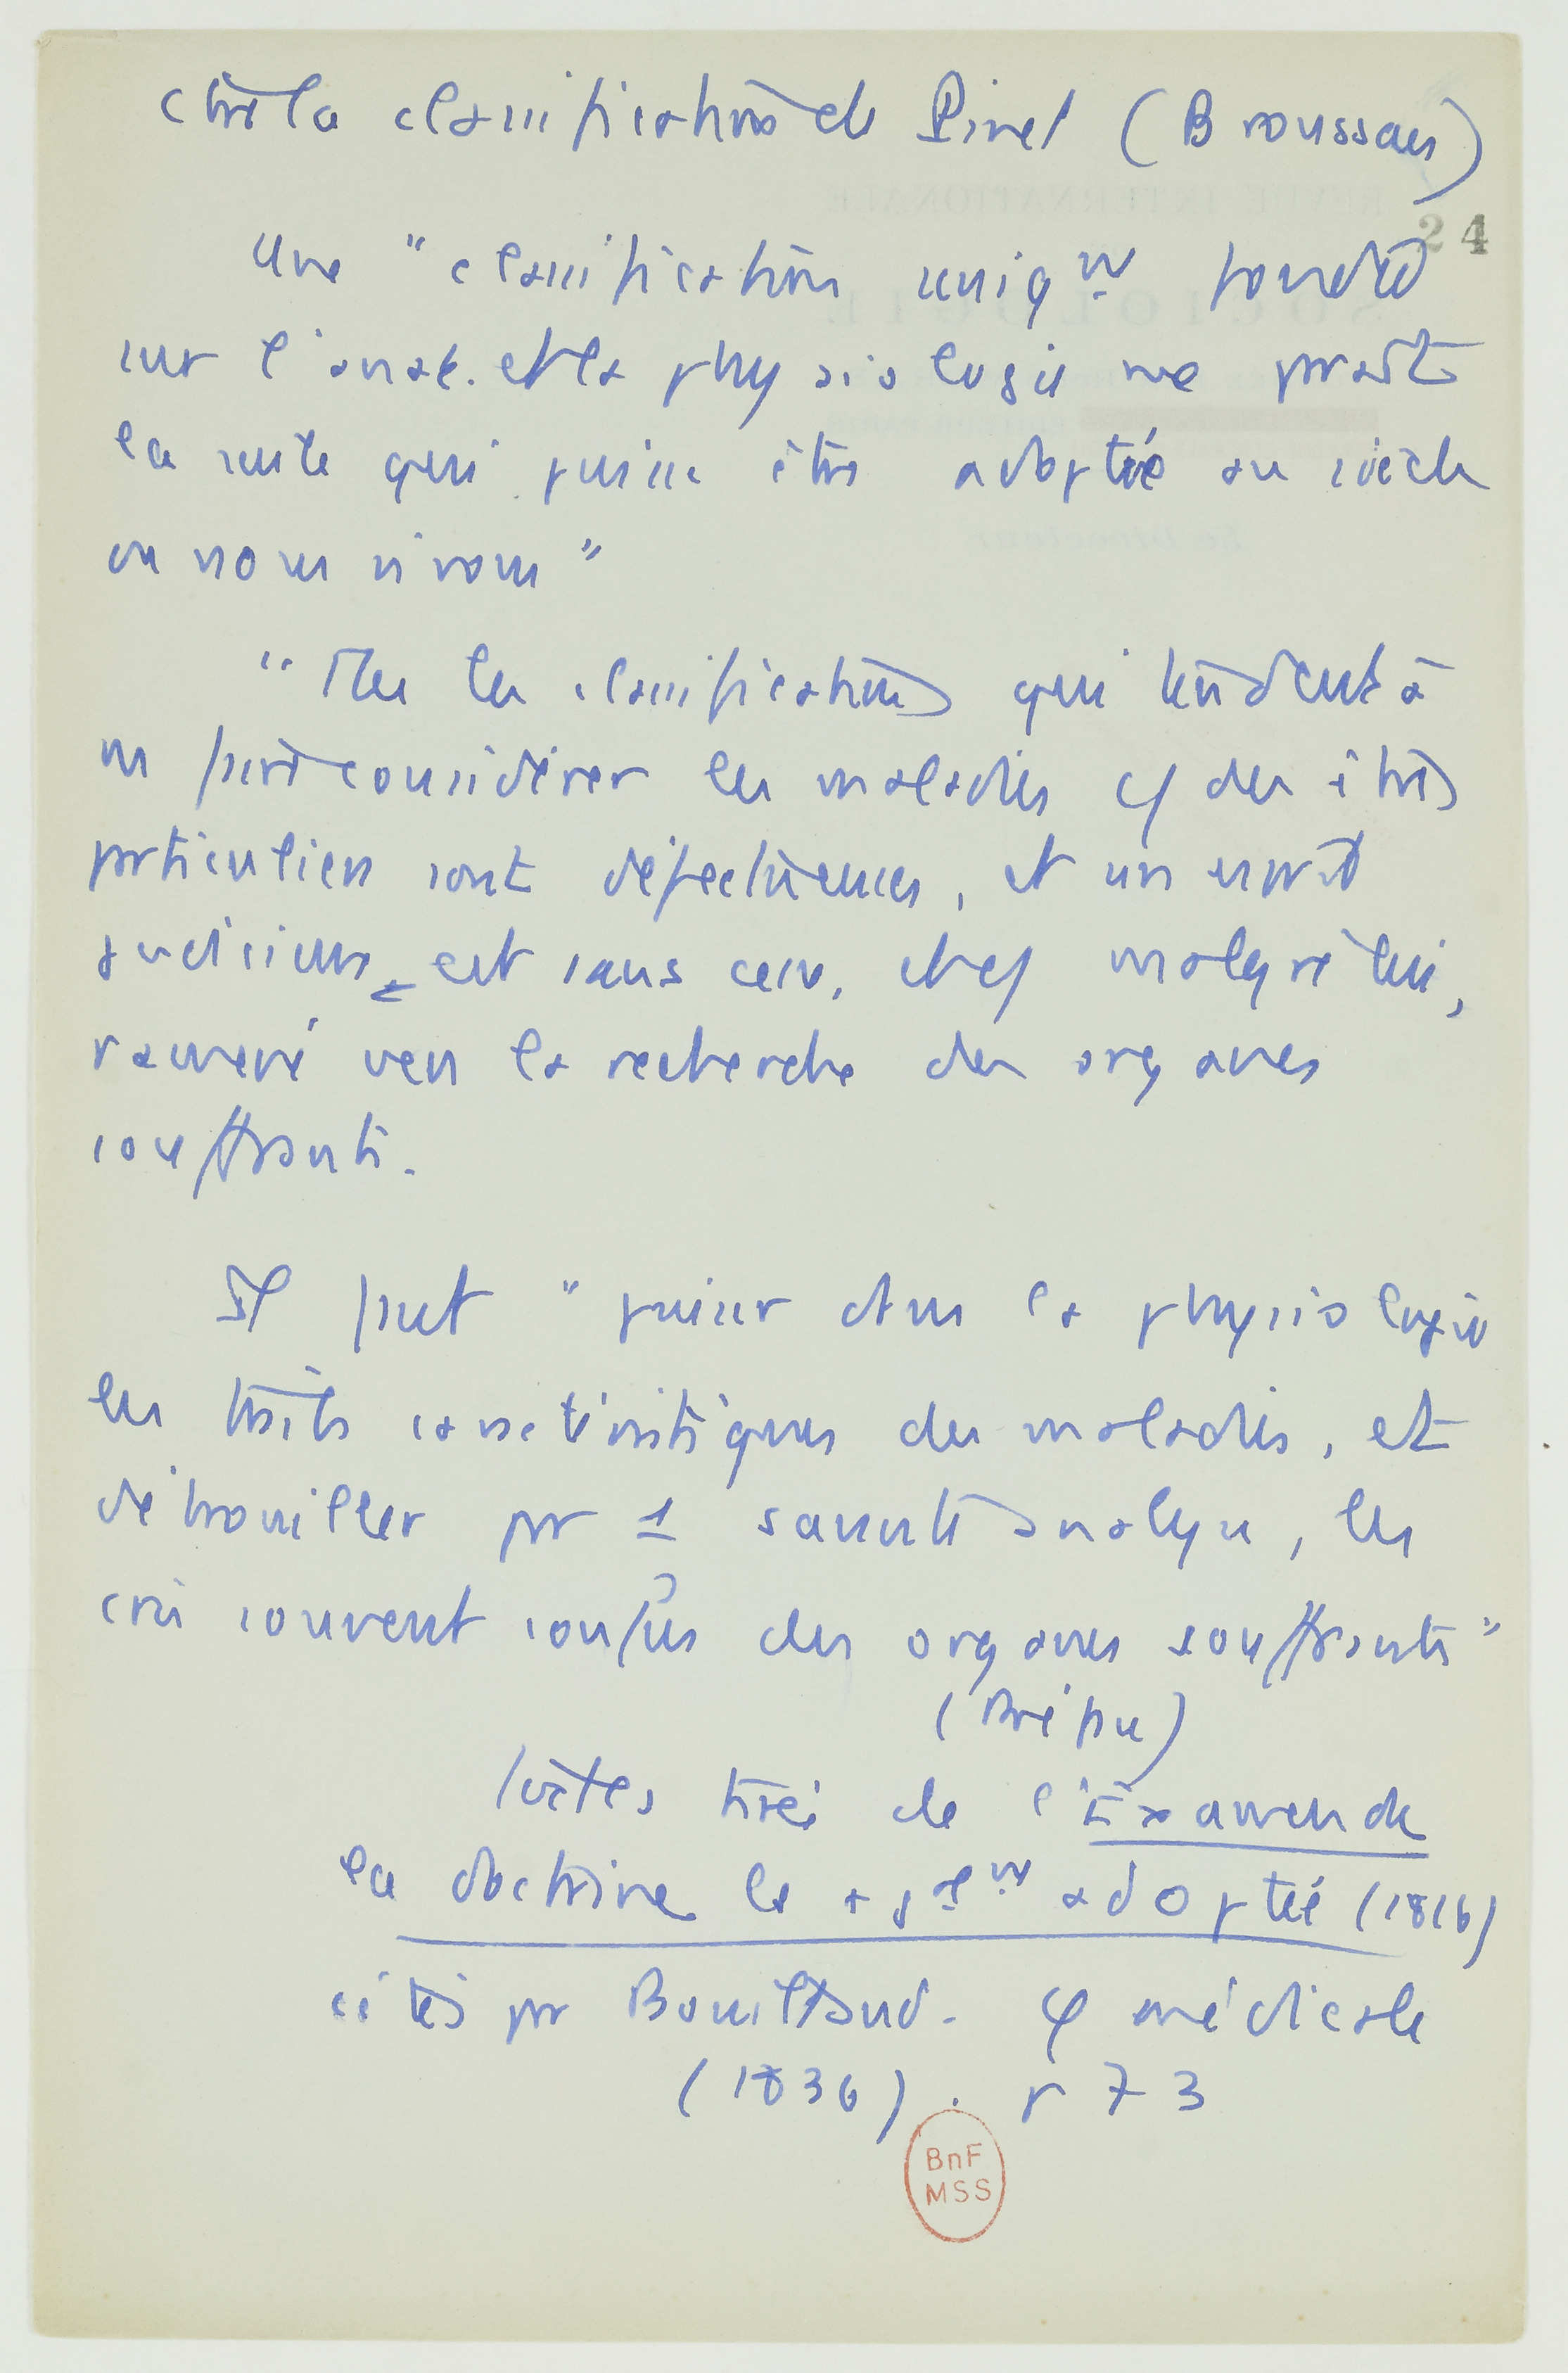 ctre la classification de Pinel (Broussais)
24
Une "classification uniqut fondée
sur l'anat. et la physiologie me paraît
la seule qui puisse être adoptée au siècle
où nous vivons"
"Ttes les classifications qui tendent à
ns faire considérer les maladies cf des êtres
particuliers sont défectueuses, et un esprit
judicieux est sans cesse, et cf malgré lui,
ramené vers la recherche des organes
souffrants.
Il faut "puiser dans la physiologie
les traits caractéristiques des maladies, et
débrouiller par 1 savante analyse, les
cris souvent confus des organes souffrants"
(Préface)
textes tirés de l'Examen de
la doctrine la + galt adoptée (1816)
cités par Bouillaud. φ médicale
(1836). p 73
BnF
MSS